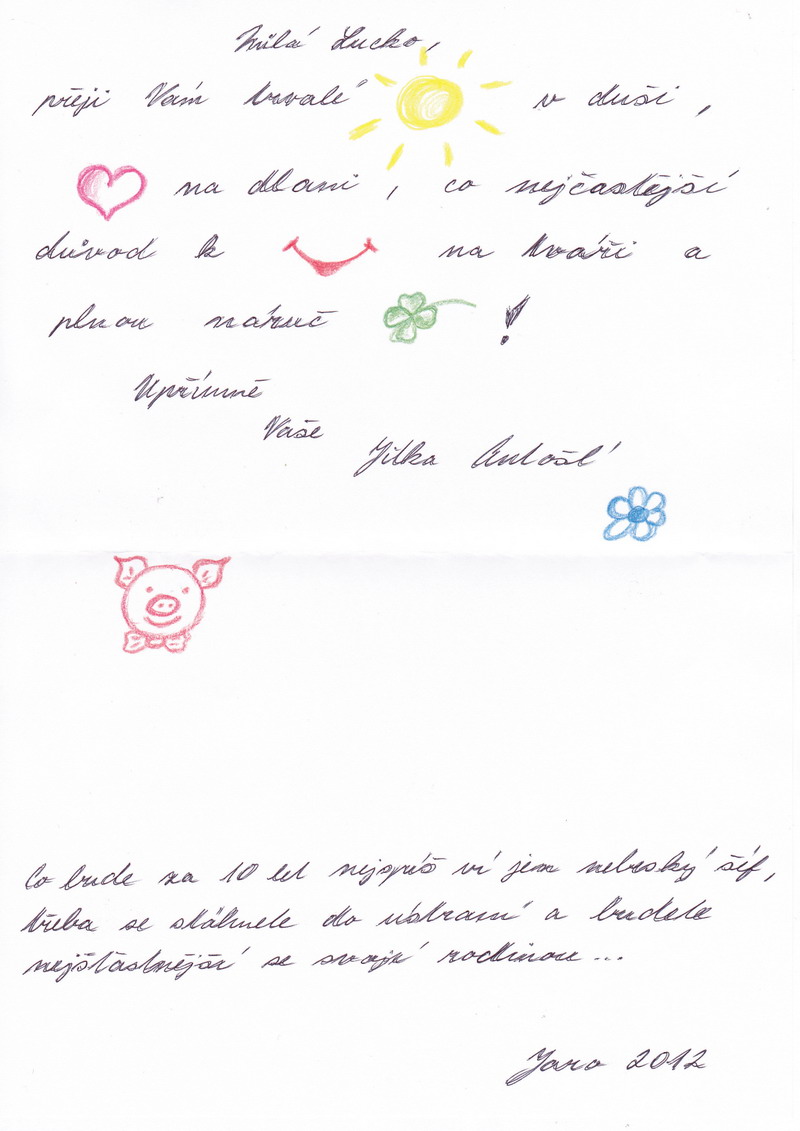 Milá Lucko,
přeji Vám trvalé v duši,
na dlani, co nejčastější
důvod k na tváři a
plnou náruč !
Upřímně
Vaše
Jitka
Co bude za 10 let nejspíš ví jen nebeský šéf,
třeba se stáhnete do ústraní a budete
nejšťastnější se svojí rodinou...
Jaro 2012